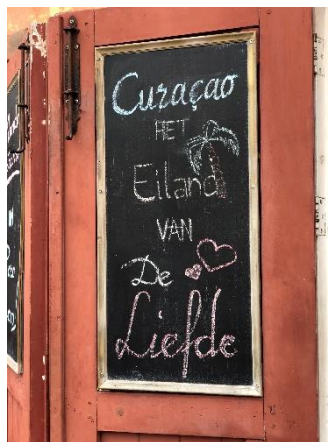 Curaçao
HET
Eiland
VAN
De
Liefde